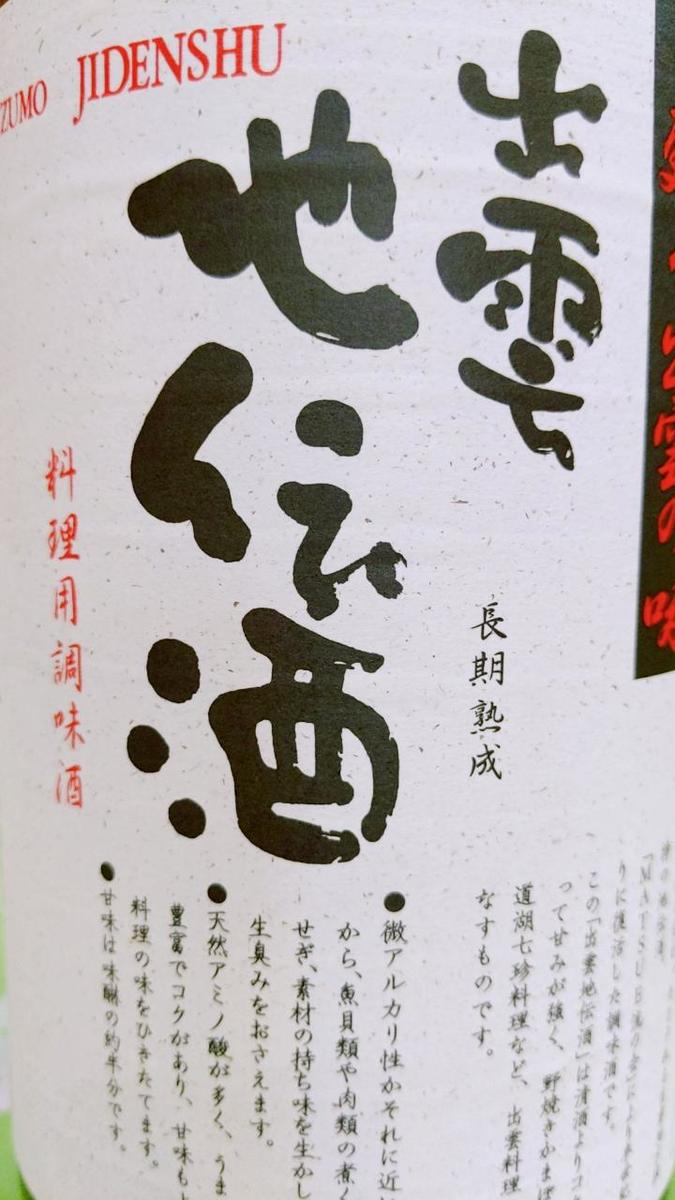 ZUMO JIDENSHU
出雲
地伝酒
長期熟成
料理用調味酒
出雲の味
「MATSUE
りに復活した調味酒です。
この「出雲地伝酒」は清酒よりコ
って甘みが強く、野焼きかま
道湖七珍料理など、出雲料理
なすものです。
●微アルカリ性かそれに近
から、魚貝類や肉類の煮く
せぎ、素材の持ち味を生かし
生臭みをおさえます。
●天然アミノ酸が多く、うま
豊富でコクがあり、甘味も上
料理の味をひきたてます。
●甘味は味醂の約半分です。